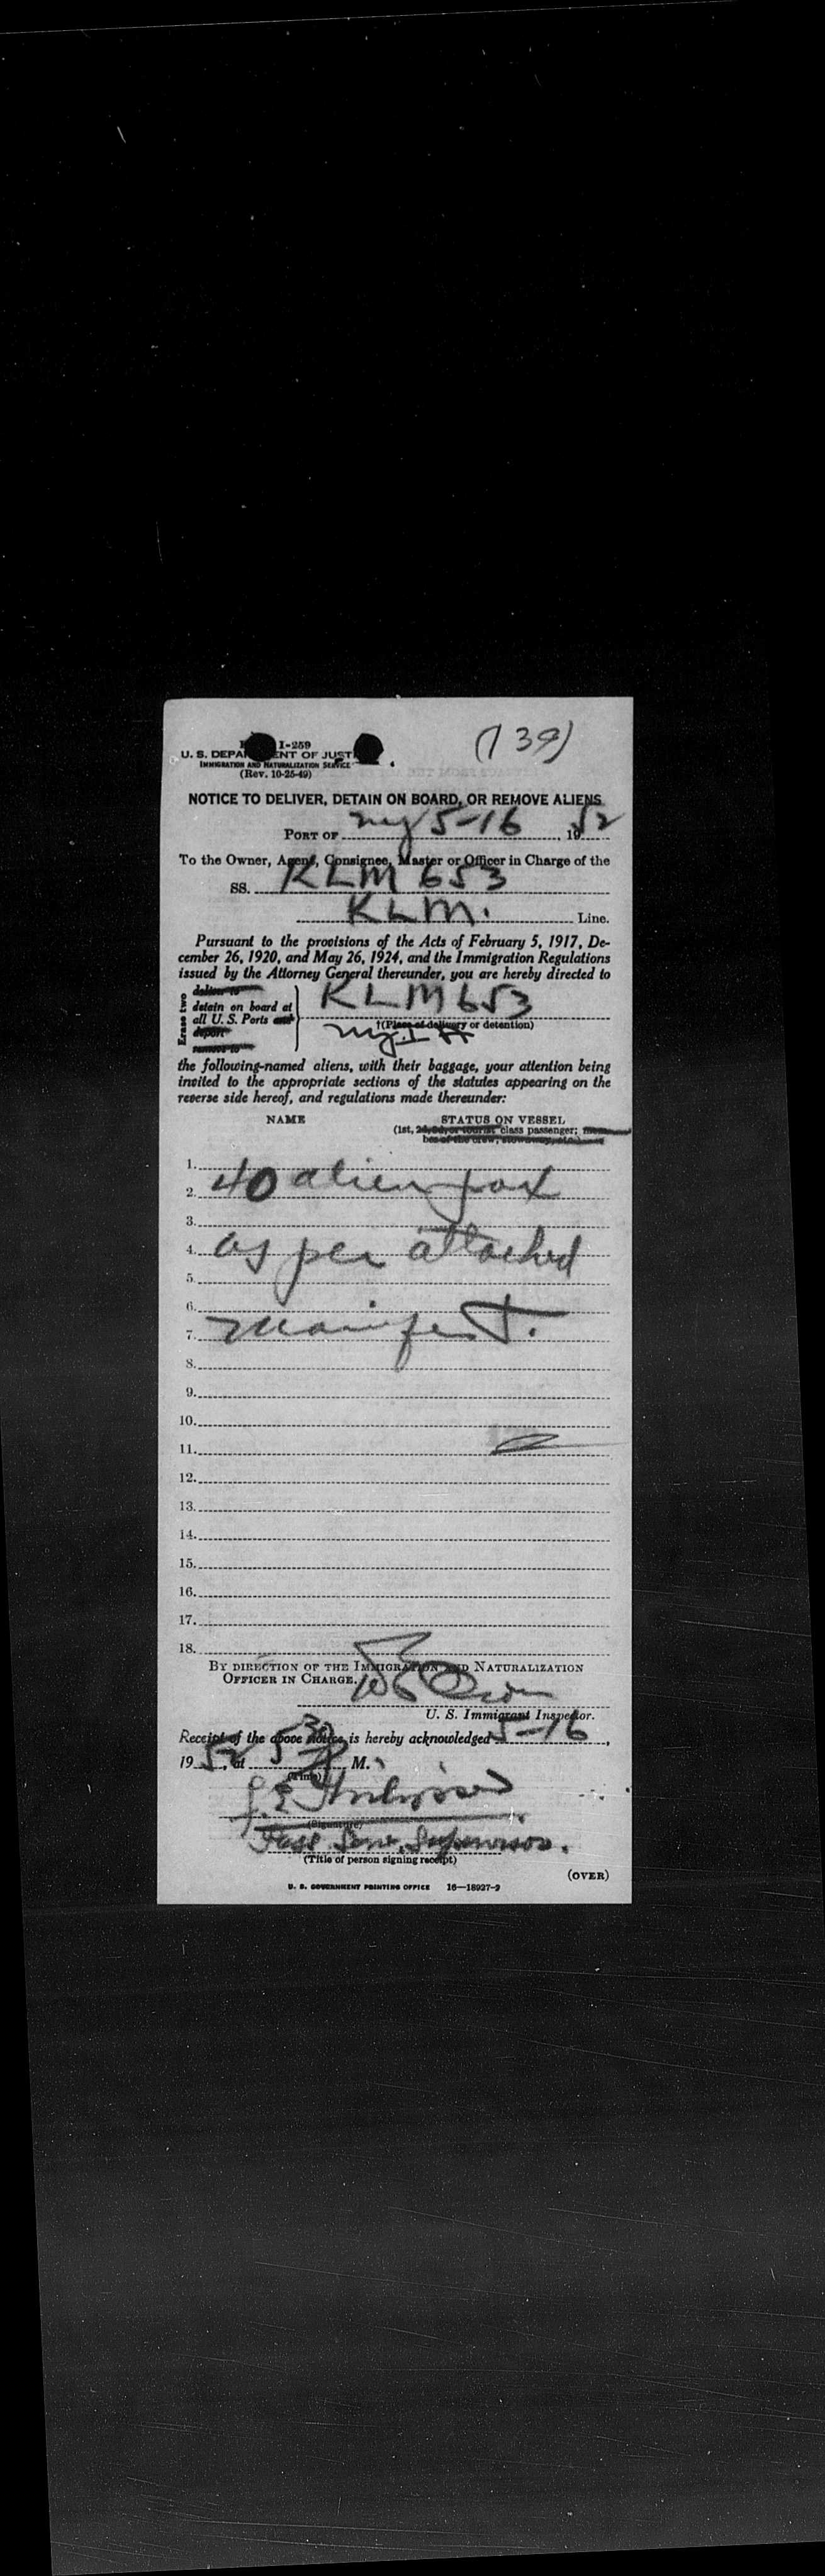 (139)
I-259
U. S. DEPARTMENT OF JUSTICE
IMMIGRATION AND NATURALIZATION SERVICE
(Rev. 10-25-49)
NOTICE TO DELIVER, DETAIN ON BOARD, OR REMOVE ALIENS
PORT OF ny 5-16, 1952
To the Owner, Agent, Consignee, Master or Officer in Charge of the
SS. KLM 653
KLM. Line.
Pursuant to the provisions of the Acts of February 5, 1917, De-
cember 26, 1920, and May 26, 1924, and the Immigration Regulations
issued by the Attorney General thereunder, you are hereby directed to
Erase two
deliver to
detain on board at
all U. S. Ports and
deport
remove to
KLM 653
†(Place of delivery or detention)
the following-named aliens, with their baggage, your attention being
invited to the appropriate sections of the statutes appearing on the
reverse side hereof, and regulations made thereunder:
NAME STATUS ON VESSEL
(1st, 2d, 3d, or tourist class passenger; mem-
ber of the crew, stowaway, etc.)
1.
2. 40 alien pax
3.
4. as per attached
5.
6.
7. manifest.
8.
9.
10.
11.
12.
13.
14.
15.
16.
17.
18.
BY DIRECTION OF THE IMMIGRATION AND NATURALIZATION
OFFICER IN CHARGE.
U. S. Immigrant Inspector.
Receipt of the above notice is hereby acknowledged 5-16,
1952, at 530 M.
(Time)
(Signature)
Pass Serv. Supervisor.
(Title of person signing receipt)
(OVER)
U. S. GOVERNMENT PRINTING OFFICE 16—18927-2